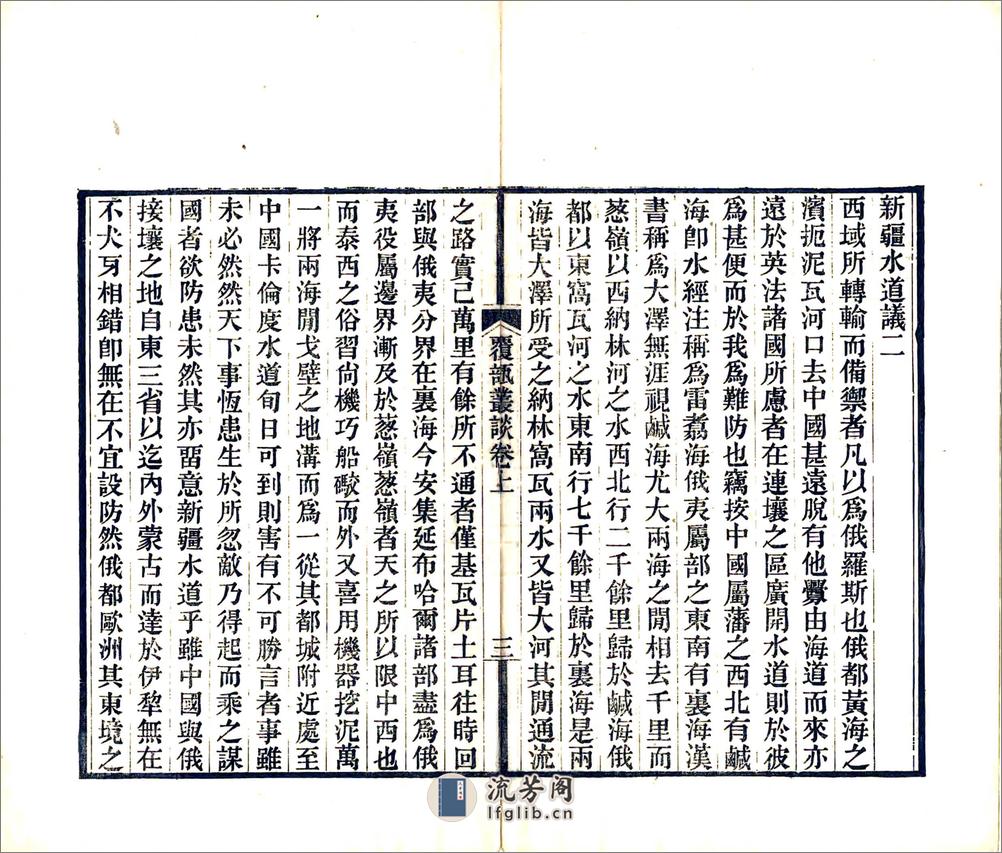 新疆水道議二
西域所轉輸而備禦者凡以爲俄羅斯也俄都黃海之
濱扼泥瓦河口去中國甚遠脫有他釁由海道而來亦
遠於英法諸國所慮者在連壤之區廣開水道則於彼
爲甚便而於我爲難防也竊按中國屬藩之西北有鹹
海卽水經注稱爲雷翥海俄夷屬部之東南有裏海漢
書稱爲大澤無涯視鹹海尤大兩海之閒相去千里而
葱嶺以西納林河之水西北行二千餘里歸於鹹海俄
都以東窩瓦河之水東南行七千餘里歸於裏海是兩
海皆大澤所受之納林窩瓦兩水又皆大河其閒通流
覆瓿叢談卷上
三
之路實已萬里有餘所不通者僅基瓦片土耳往時回
部與俄夷分界在裏海今安集延布哈爾諸部盡爲俄
夷役屬邊界漸及於葱嶺葱嶺者天之所以限中西也
而泰西之俗習尙機巧船礮而外又喜用機器挖泥萬
一將兩海閒戈壁之地溝而爲一從其都城附近處至
中國卡倫度水道旬日可到則害有不可勝言者事雖
未必然然天下事恆患生於所忽敵乃得起而乘之謀
國者欲防患未然其亦畱意新疆水道乎雖中國與俄
接壤之地自東三省以迄內外蒙古而達於伊犂無在
不犬牙相錯卽無在不宜設防然俄都歐洲其東境之
流芳阁
lfglib.cn